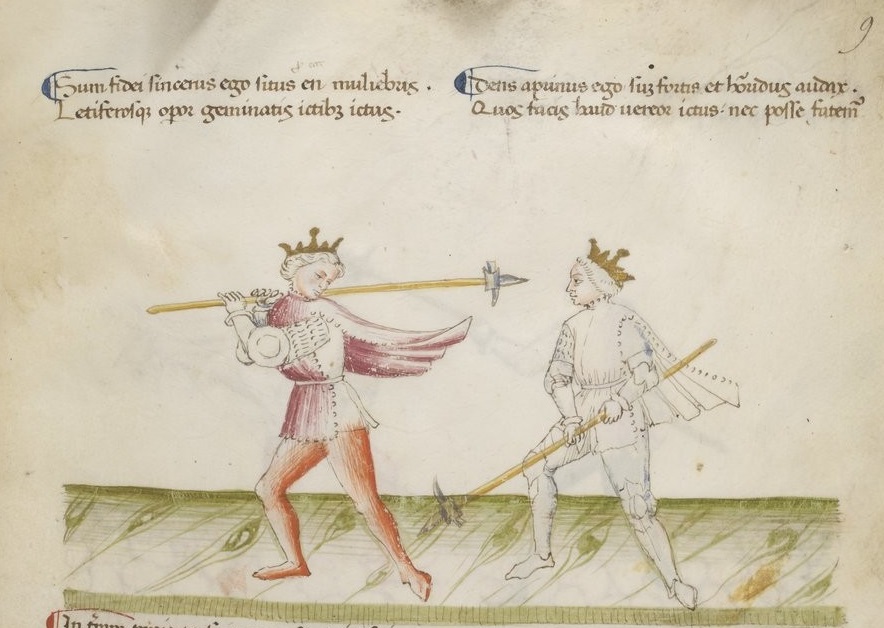 9
Sum fidei sincerus ego situs en muliebris.
Letiferosqꝫ opor geminatis ictibꝫ ictus.
Dens aprinus ego suꝫ fortis et hōridus audax.
Quos facis haud uereor ictus. nec posse fatem̄
In